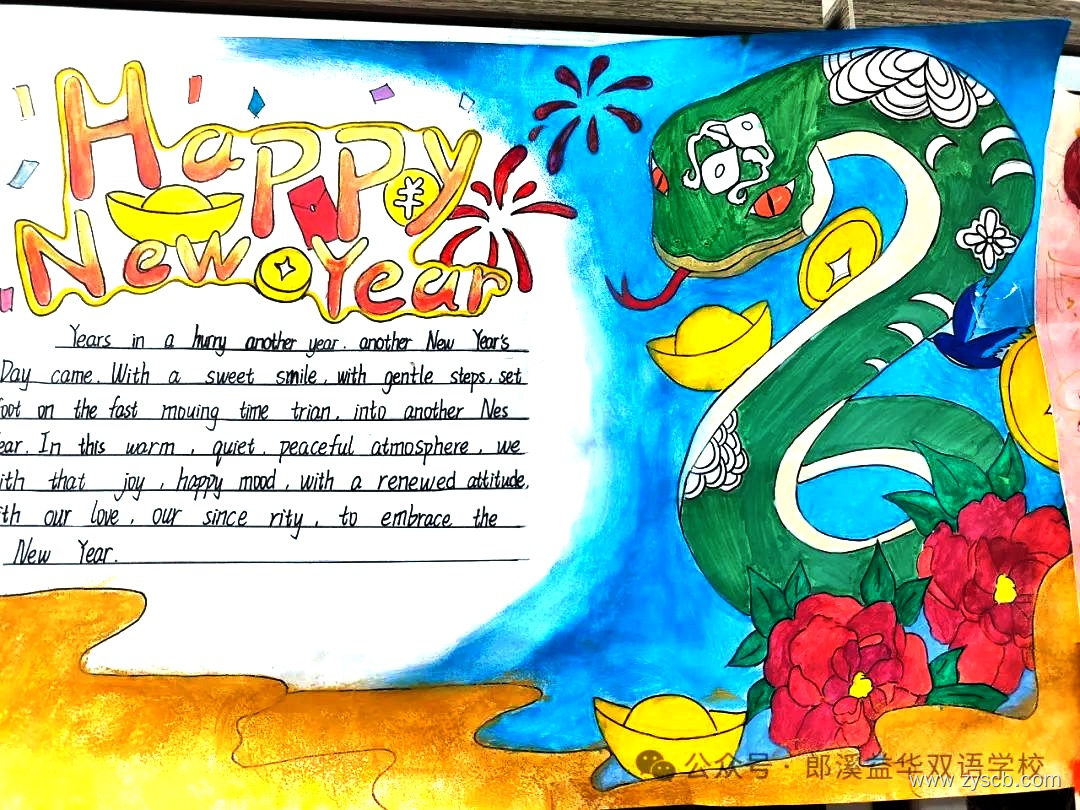 Happy
New Year
¥
Years in a hurry another year. another New Year's
Day came. With a sweet smile, with gentle steps, set
foot on the fast moving time trian, into another Nes
ear. In this warm, quiet, peaceful atmosphere, we
ith that joy, happy mood, with a renewed attitude,
ith our love, our since rity, to embrace the
New Year.
公众号·郎溪益华双语学校
www.zyscb.com